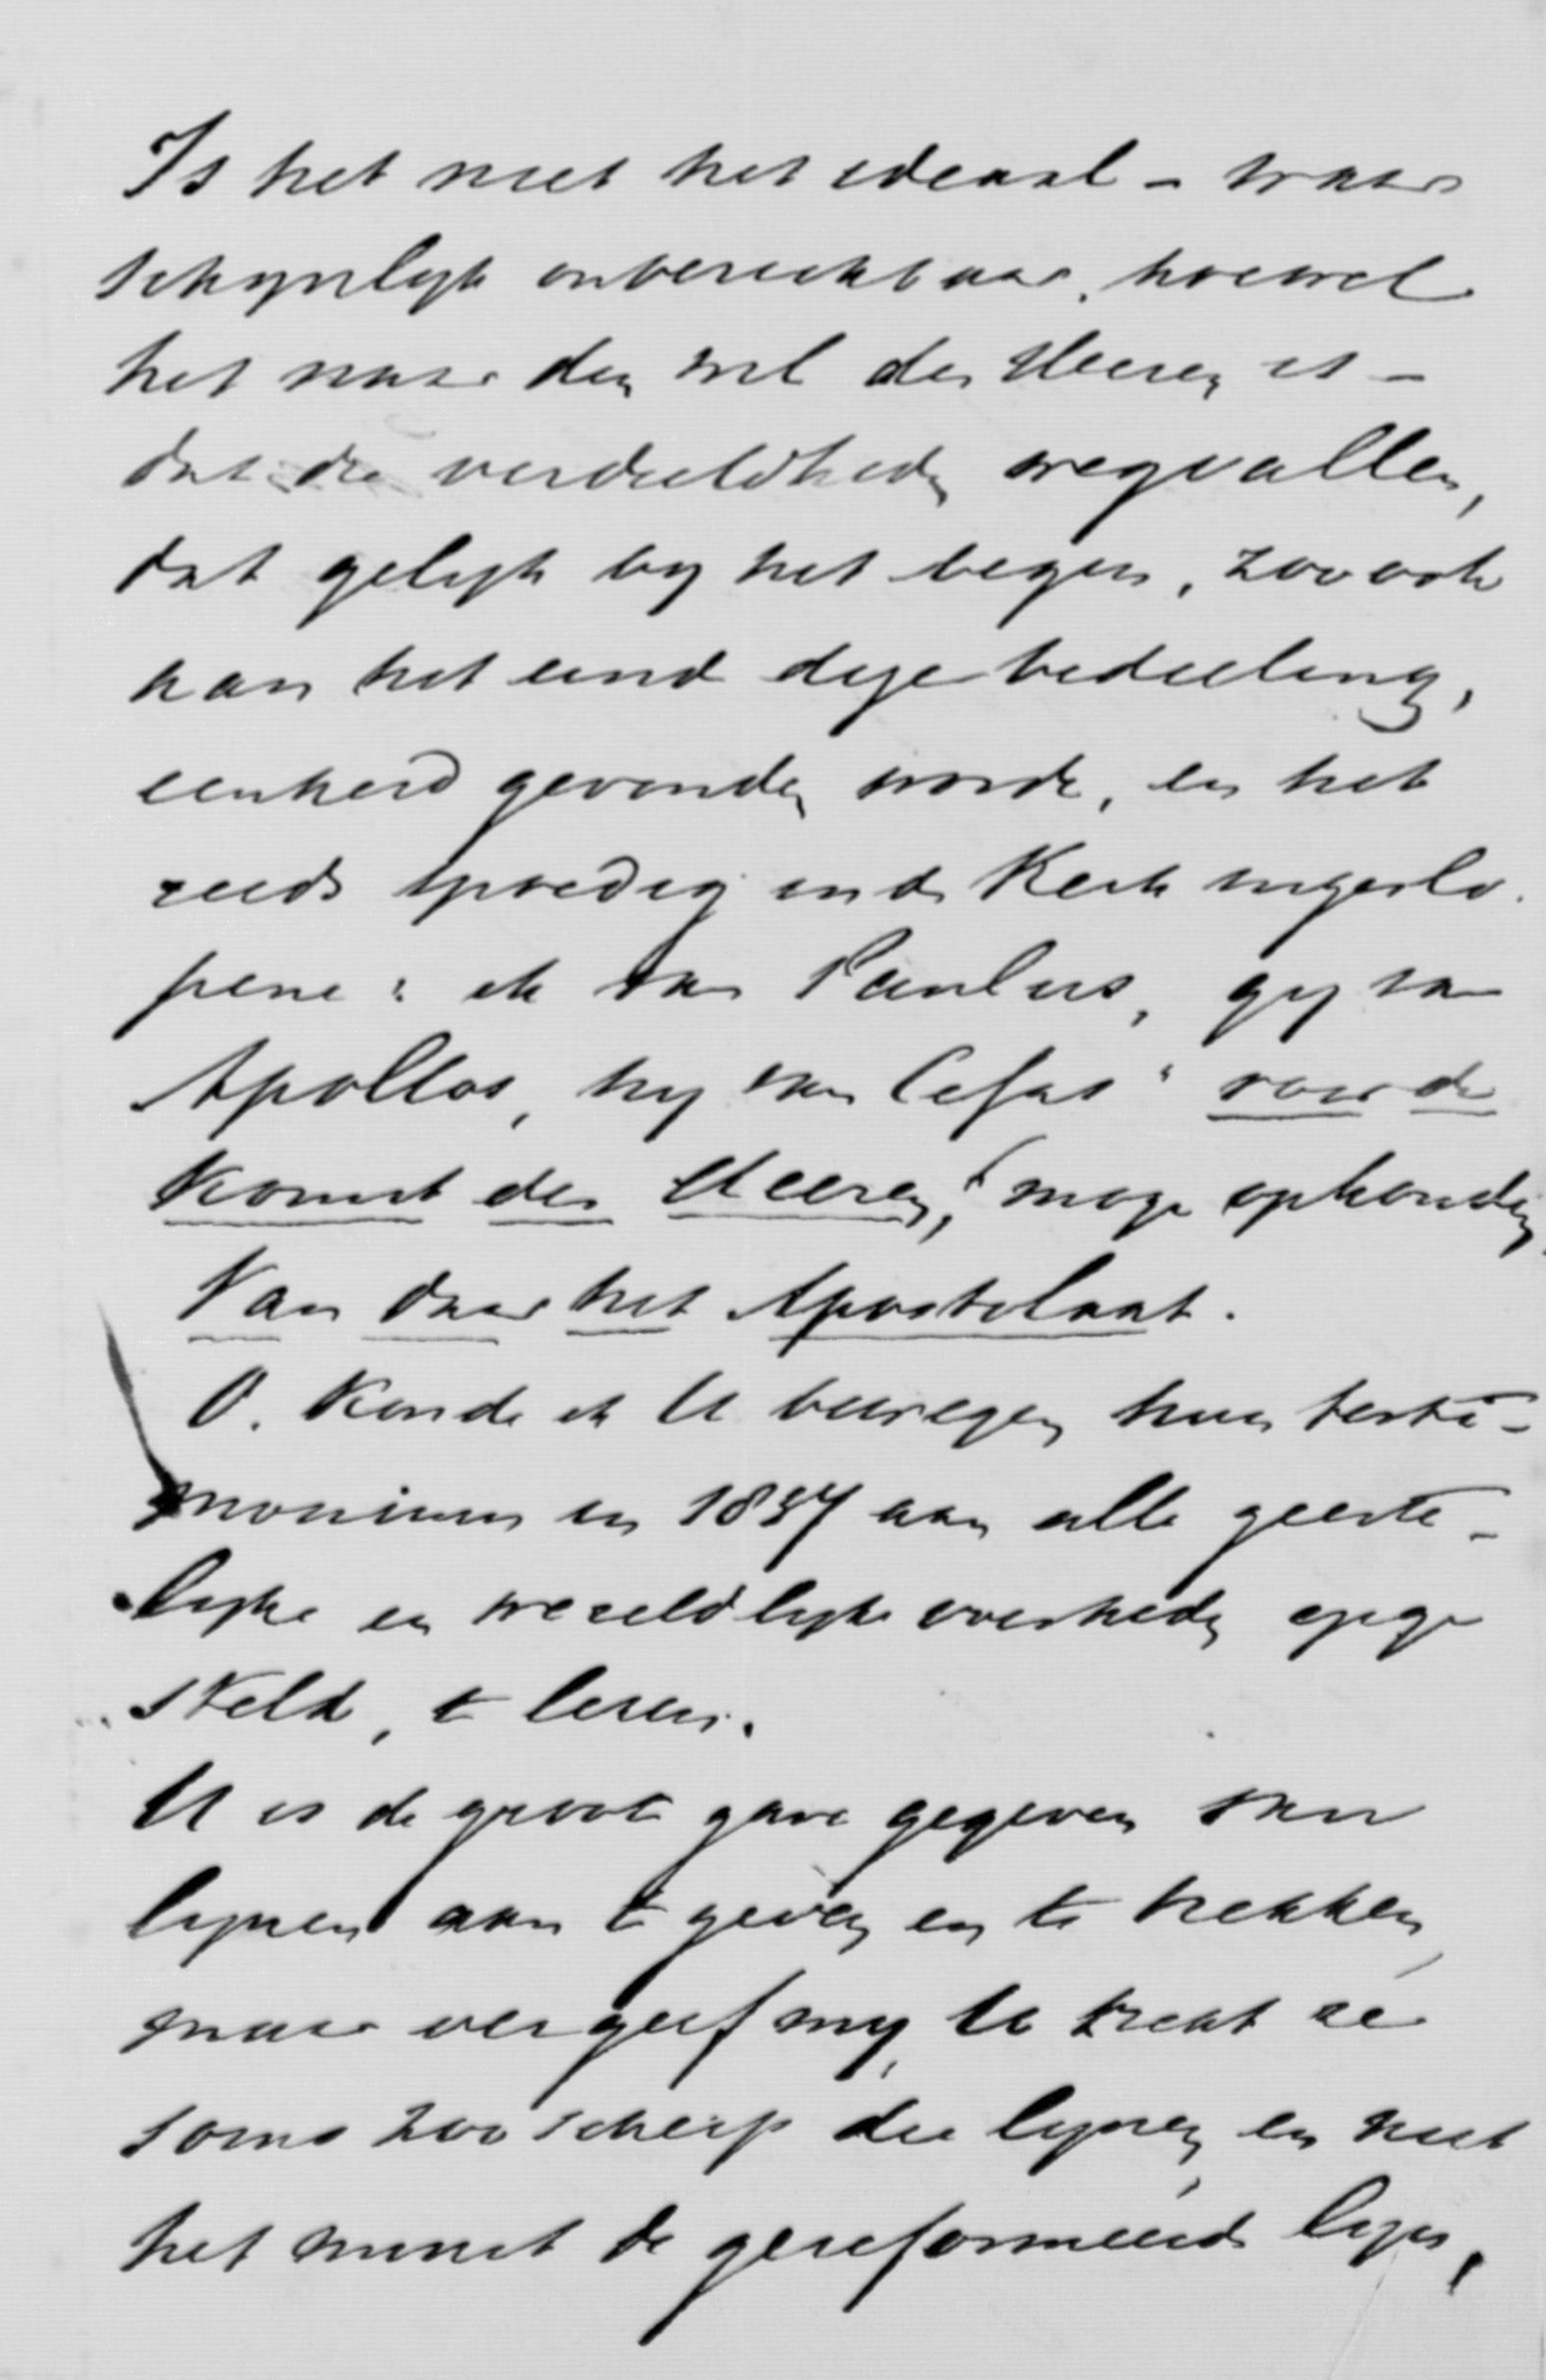 Is het niet het ideaal – waar
schynlyk onbereikbaar, hoewel
het naar den wil des Heeren is –
dat die verdeeldheden wegvallen,
dat gelyk by het begin, zoo ook
aan het eind dezer bedeeling,
eenheid gevonden worde, en het
reeds spoedig in de Kerk ingeslo-
pene: ik van Paulus, gy van
Apollos, hy van Cefas" voor de
komst des Heeren, moge ophouden.
Van daar het Apostolaat.
O. Konde ik U bewegen hun testi-
monium in 1837 aan alle geeste-
lyke en wereldlyke overheden opge
steld, te lezen.
U is de groote gave gegeven van
lynen aan te geven en te trekken,
maar vergeef my, U trekt ze
soms zoo scherp die lynen, en niet
het minst de gereformeerde lyn,